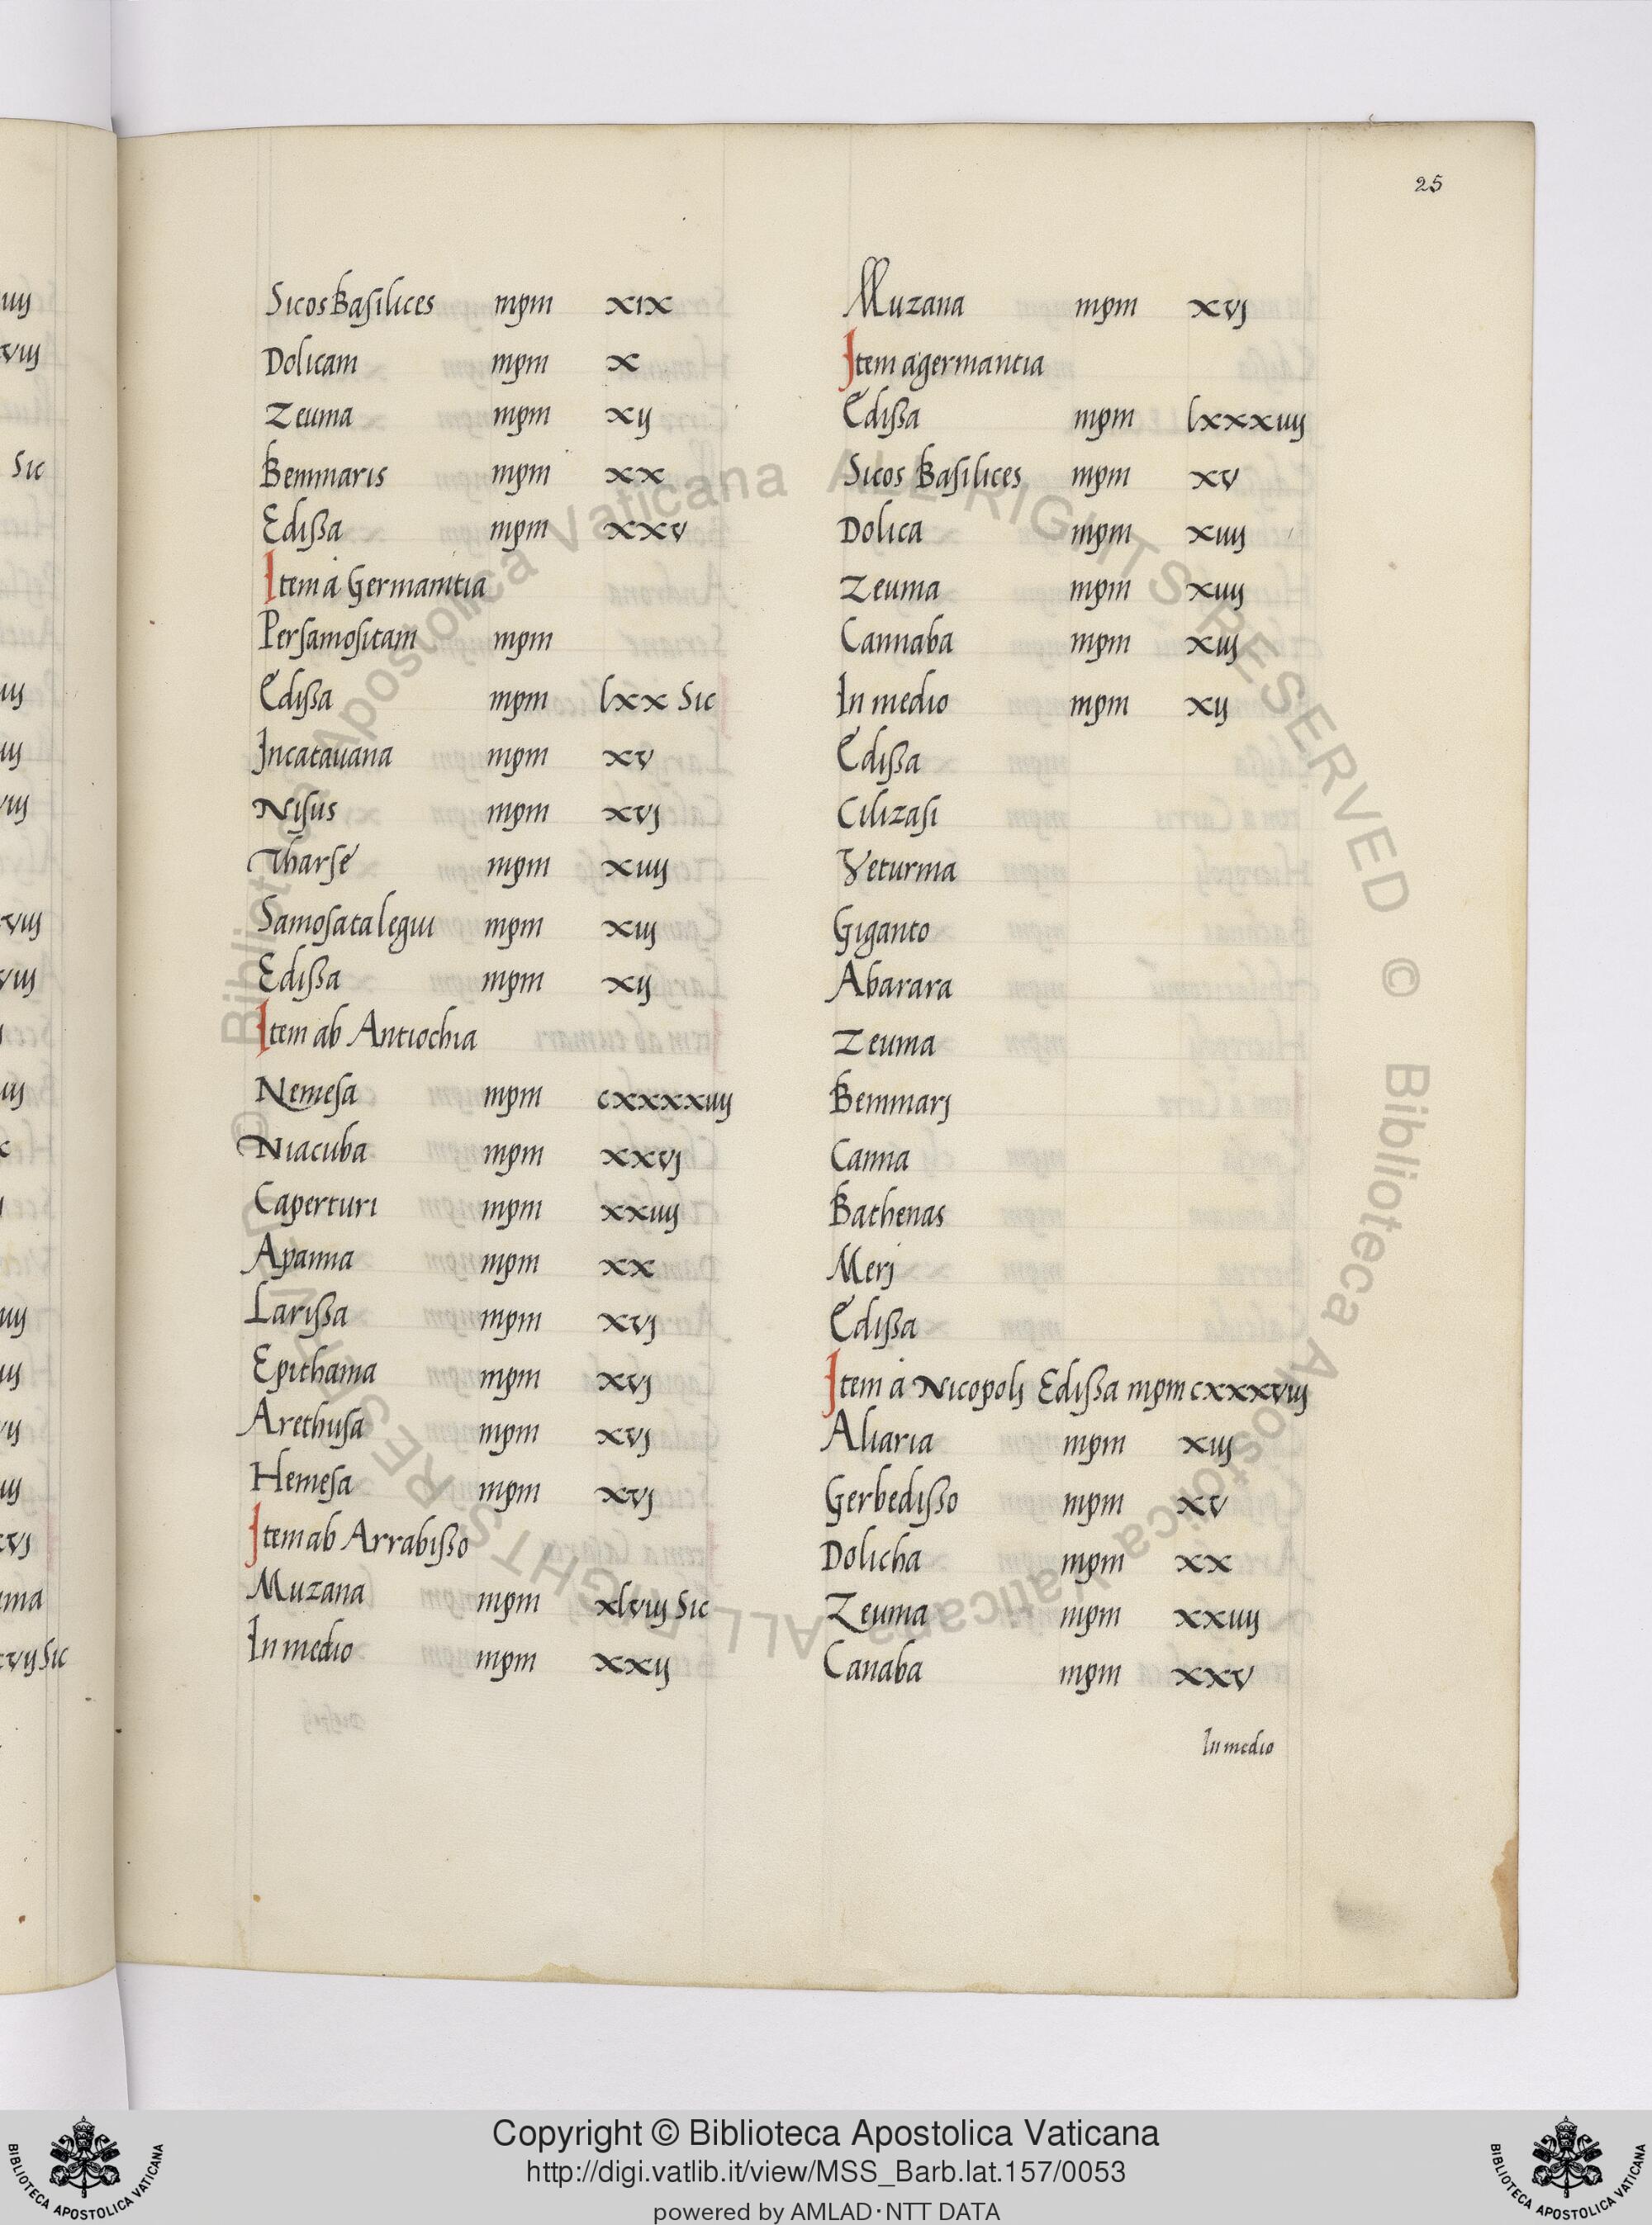 25
Sicos Basilices mpm xix
Dolicam mpm x
Zeuma mpm xij
Bemmaris mpm xx
Edissa mpm xxv
Item à Germanitia
Persamositam mpm
Edissa mpm lxx Sic
Incatavana mpm xv
Nisus mpm xvj
Tharse mpm xiiij
Samosata legui mpm xiij
Edissa mpm xij
Item ab Antiochia
Nemesa mpm cxxxxiiij
Niacuba mpm xxvj
Caperturi mpm xxiiij
Apanna mpm xx
Larissa mpm xvj
Epithama mpm xvj
Arethusa mpm xvj
Hemesa mpm xvj
Item ab Arrabisso
Muzana mpm xlviij Sic
In medio mpm xxij
Muzana mpm xvj
Item a germantia
Edissa mpm lxxxiiij
Sicos Basilices mpm xv
Dolica mpm xiiij
Zeuma mpm xiiij
Cannaba mpm xiij
In medio mpm xij
Edissa
Cilizasi
Veturma
Giganto
Abarara
Zeuma
Bemmarj
Canna
Bathenas
Merj
Edissa
Item à Nicopolj Edissa mpm cxxxviij
Aliaria mpm xiij
Gerbedisso mpm xv
Dolicha mpm xx
Zeuma mpm xxiiij
Canaba mpm xxv
In medio
Copyright © Biblioteca Apostolica Vaticana
http://digi.vatlib.it/view/MSS_Barb.lat.157/0053
powered by AMLAD·NTT DATA